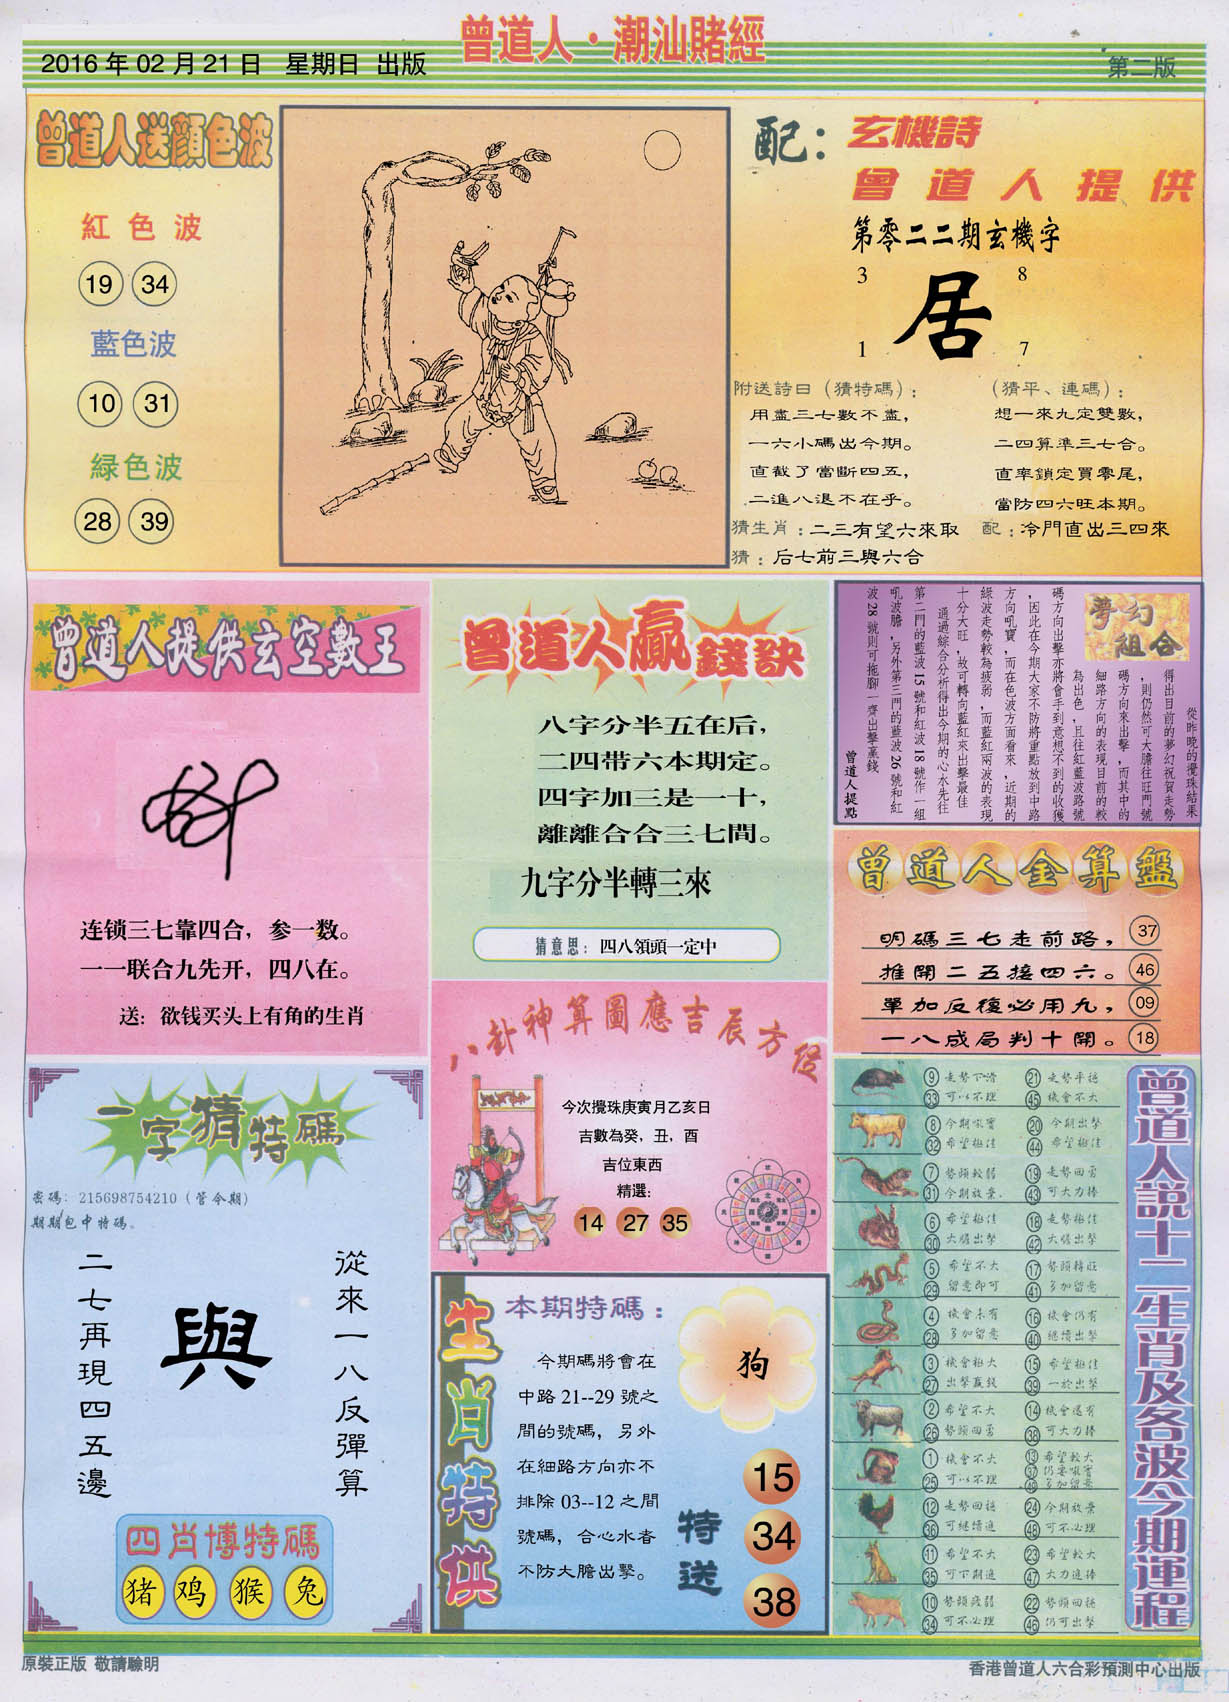 曾道人·潮汕賭經
2016年02月21日 星期日 出版
第二版
曾道人送顏色波
紅色波
19 34
藍色波
10 31
緑色波
28 39
配：玄機詩
曾道人提供
第零二二期玄機字
3 8
居
1 7
附送詩日（猜特碼）：
用盡三七數不盡，
一六小碼出今期。
直截了當斷四五，
二進八退不在乎。
（猜平、連碼）：
想一來九定雙數，
二四算準三七合。
直率鎖定買零尾，
當防四六旺本期。
猜生肖：二三有望六來取
配：冷門直出三四來
猜：后七前三與六合
曾道人提供玄空數王
连锁三七靠四合，参一数。
一一联合九先开，四八在。
送：欲钱买头上有角的生肖
曾道人贏錢訣
八字分半五在后，
二四带六本期定。
四字加三是一十，
離離合合三七間。
九字分半轉三來
猜意思：四八領頭一定中
夢幻組合
從昨晚的攪珠結果
得出目前的夢幻祝賀走勢
，則仍然可大膽往旺門號
碼方向來出擊，而其中的
細路方向的表現目前的較
為出色，且往紅藍波路號
碼方向出擊亦將會手到意想不到的收獲
，因此在今期大家不防將重點放到中路
方向吼寶，而在色波方面看來，近期的
綠波走勢較為疲弱，而藍紅兩波的表現
十分大旺，故可轉向藍紅來出擊最佳
通過綜合分析得出今期的心水先往
第二門的藍波15號和紅波18號作一組
吼波膽，另外第三門的藍波26號和紅
波28號則可拖腳一齊出擊贏錢
曾道人提點
曾道人金算盤
明碼三七走前路， 37
推開二五接四六。 46
單加反復必用九， 09
一八成局判十開。 18
八卦神算圖應吉辰方位
今次攪珠庚寅月乙亥日
吉數為癸，丑，酉
吉位東西
精選：
14 27 35
一字猜特碼
密碼：215698754210（管令期）
期期包中特碼。
從來一八反彈算
與
二七再現四五邊
四肖博特碼
猪 鸡 猴 兔
生肖特供
本期特碼：
今期碼將會在
中路21--29號之
間的號碼，另外
在細路方向亦不
排除03--12之間
號碼，合心水者
不防大膽出擊。
狗
特送
15
34
38
曾道人說十二生肖及各波今期運程
9 走勢下滑 21 走勢平穩
33 可以不理 45 機會不大
8 今期吼寶 20 今期出擊
32 希望極佳 44 希望極佳
7 勢頭較弱 19 走勢回勇
31 今期放棄 43 可大力捧
6 希望極佳 18 走勢極佳
30 大膽出擊 42 大膽出擊
5 希望不大 17 勢頭轉旺
29 留意即可 41 多加留意
4 機會未有 16 機會仍有
28 多加留意 40 繼續出擊
3 機會極大 15 希望極佳
27 出擊贏錢 39 一於出擊
2 希望不大 14 機會還有
26 勢頭回勇 38 可大力捧
1 機會不大 13 希望較大
25 可以不理 37 仍要吼實
49 多加留意
12 走勢回穩 24 今期放棄
36 可繼續追 48 可不必理
11 希望不大 23 希望較大
35 可下期追 47 大力追捧
10 勢頭疲弱 22 勢頭回穩
34 可不必理 46 仍可出擊
原裝正版 敬請驗明
香港曾道人六合彩預測中心出版